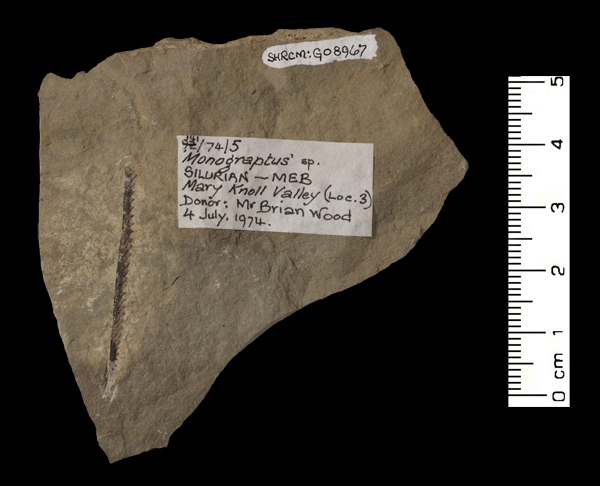 SHRCM:G08967
/74/5
'Monograptus' sp.
SILURIAN – MEB
Mary Knoll Valley (Loc. 3)
Donor: Mr Brian Wood
4 July, 1974.
5
4
3
2
1
0 cm